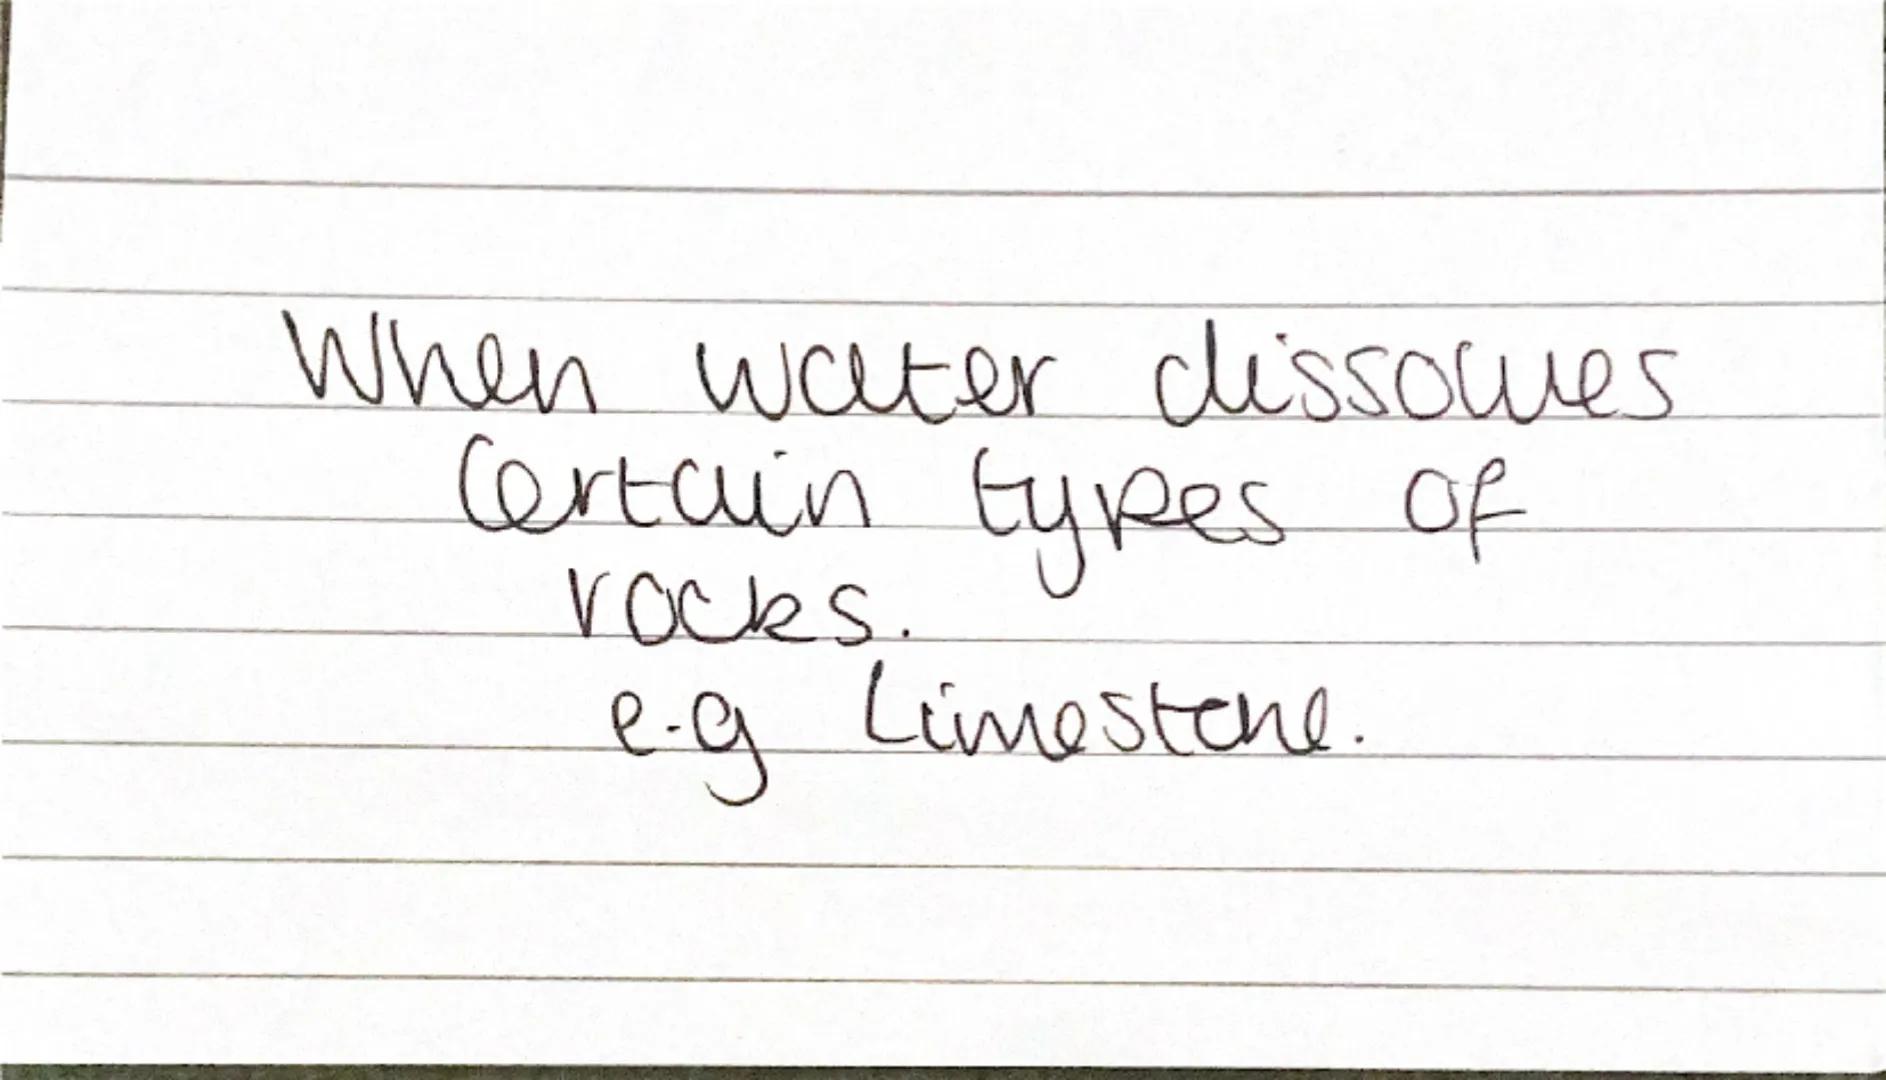 When water dissolves
Certain types of
rocks.
e.g Limestone.